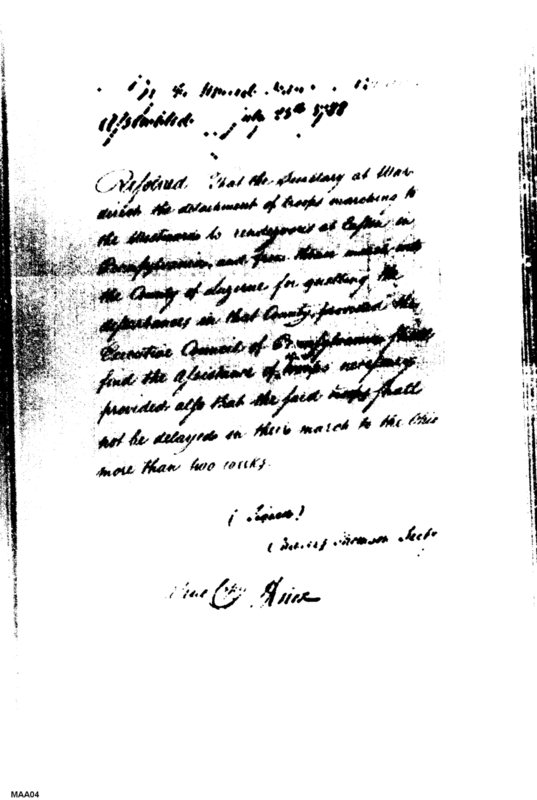 By the United States in Congress
Assembled July 25th 1788
Resolved That the Secretary at War
direct the detachment of troops marching to
the Westward to rendezvous at Easton in
Pennsylvania and from thence march into
the County of Luzerne for quelling the
disturbances in that County, provided the
Executive Council of Pennsylvania shall
find the Assistance of troops necessary
provided also that the said troops shall
not be delayed in their march to the Ohio
more than two weeks.
(Signed)
Charles Thomson Secy
True Copy
MAA04